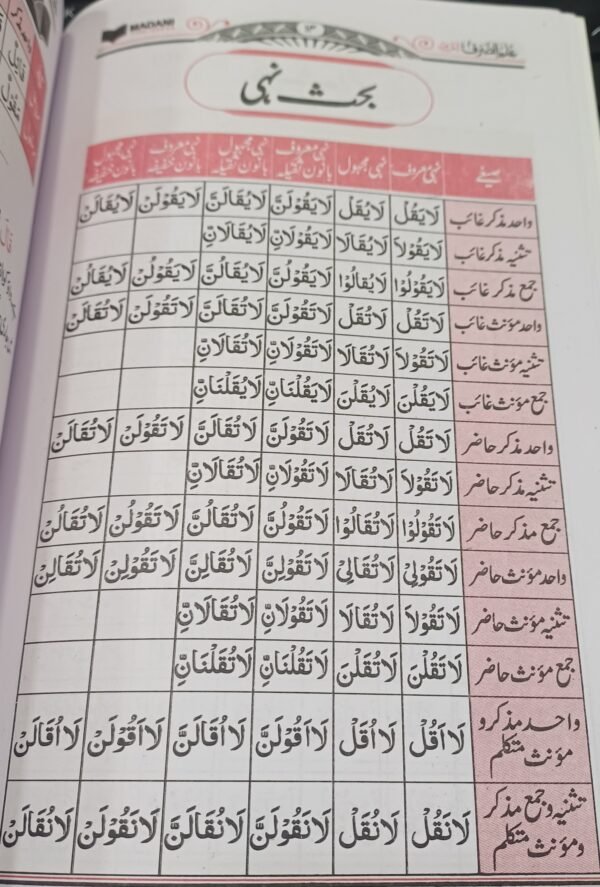 MADANI
۱۳
علم الصرف
بحث نہی
صیغے نہی معروف نہی مجہول نہی معروف بانون ثقیلہ نہی مجہول بانون ثقیلہ نہی معروف بانون خفیفہ نہی مجہول بانون خفیفہ
واحد مذکر غائب لَا یَقُلْ لَا یُقَلْ لَا یَقُوْلَنَّ لَا یُقَالَنَّ لَا یَقُوْلَنْ لَا یُقَالَنْ
تثنیہ مذکر غائب لَا یَقُوْلَا لَا یُقَالَا لَا یَقُوْلَانِّ لَا یُقَالَانِّ
جمع مذکر غائب لَا یَقُوْلُوْا لَا یُقَالُوْا لَا یَقُوْلُنَّ لَا یُقَالُنَّ لَا یَقُوْلُنْ لَا یُقَالُنْ
واحد مؤنث غائب لَا تَقُلْ لَا تُقَلْ لَا تَقُوْلَنَّ لَا تُقَالَنَّ لَا تَقُوْلَنْ لَا تُقَالَنْ
تثنیہ مؤنث غائب لَا تَقُوْلَا لَا تُقَالَا لَا تَقُوْلَانِّ لَا تُقَالَانِّ
جمع مؤنث غائب لَا یَقُلْنَ لَا یُقَلْنَ لَا یَقُلْنَانِّ لَا یُقَلْنَانِّ
واحد مذکر حاضر لَا تَقُلْ لَا تُقَلْ لَا تَقُوْلَنَّ لَا تُقَالَنَّ لَا تَقُوْلَنْ لَا تُقَالَنْ
تثنیہ مذکر حاضر لَا تَقُوْلَا لَا تُقَالَا لَا تَقُوْلَانِّ لَا تُقَالَانِّ
جمع مذکر حاضر لَا تَقُوْلُوْا لَا تُقَالُوْا لَا تَقُوْلُنَّ لَا تُقَالُنَّ لَا تَقُوْلُنْ لَا تُقَالُنْ
واحد مؤنث حاضر لَا تَقُوْلِیْ لَا تُقَالِیْ لَا تَقُوْلِنَّ لَا تُقَالِنَّ لَا تَقُوْلِنْ لَا تُقَالِنْ
تثنیہ مؤنث حاضر لَا تَقُوْلَا لَا تُقَالَا لَا تَقُوْلَانِّ لَا تُقَالَانِّ
جمع مؤنث حاضر لَا تَقُلْنَ لَا تُقَلْنَ لَا تَقُلْنَانِّ لَا تُقَلْنَانِّ
واحد مذکر و مؤنث متکلم لَا اَقُلْ لَا اُقَلْ لَا اَقُوْلَنَّ لَا اُقَالَنَّ لَا اَقُوْلَنْ لَا اُقَالَنْ
تثنیہ و جمع مذکر و مؤنث متکلم لَا نَقُلْ لَا نُقَلْ لَا نَقُوْلَنَّ لَا نُقَالَنَّ لَا نَقُوْلَنْ لَا نُقَالَنْ